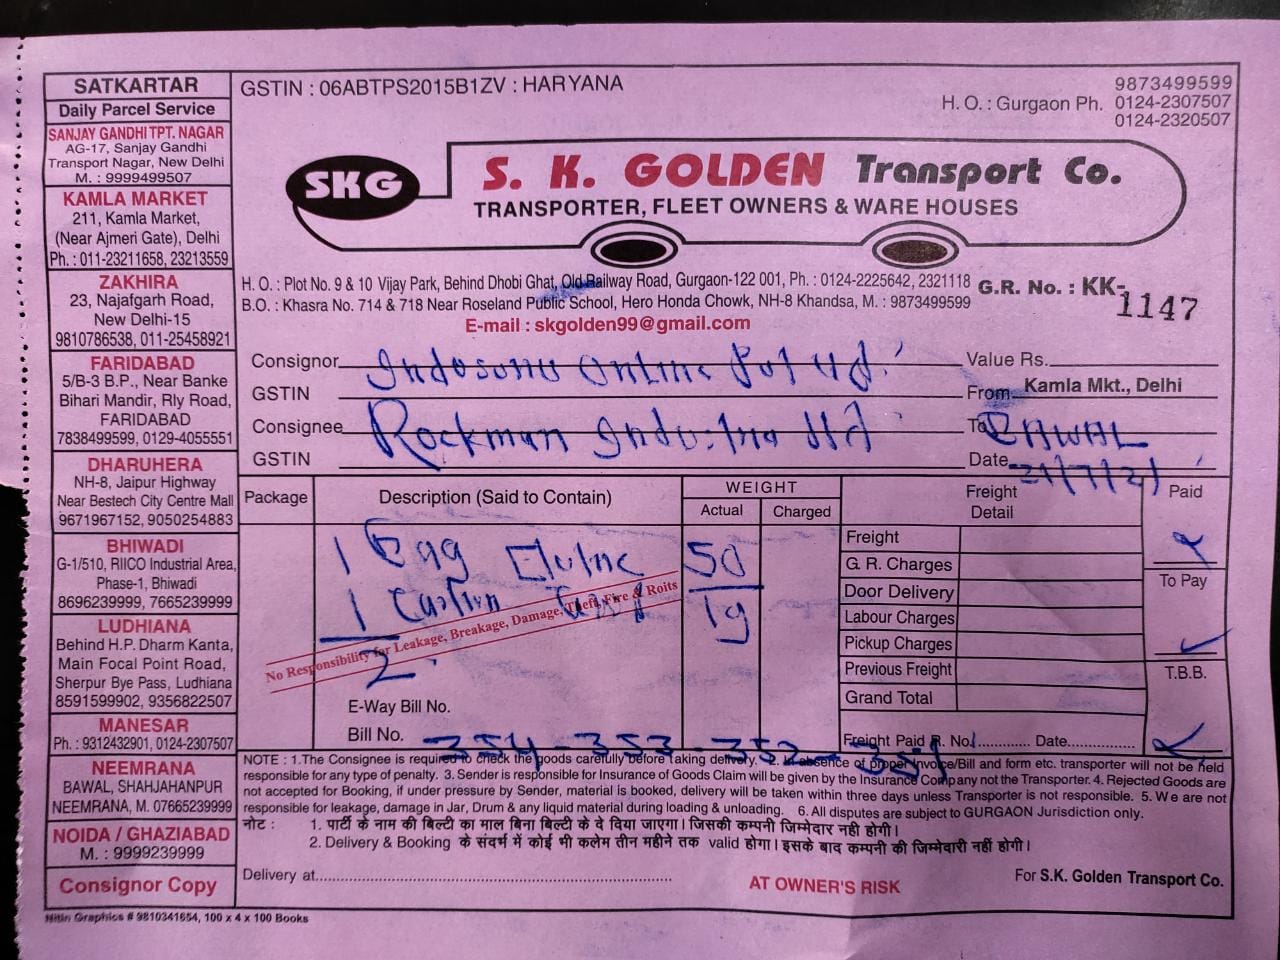 SATKARTAR
Daily Parcel Service
SANJAY GANDHI TPT. NAGAR
AG-17, Sanjay Gandhi
Transport Nagar, New Delhi
M. : 9999499507
KAMLA MARKET
211, Kamla Market,
(Near Ajmeri Gate), Delhi
Ph. : 011-23211658, 23213559
ZAKHIRA
23, Najafgarh Road,
New Delhi-15
9810786538, 011-25458921
FARIDABAD
5/B-3 B.P., Near Banke
Bihari Mandir, Rly Road,
FARIDABAD
7838499599, 0129-4055551
DHARUHERA
NH-8, Jaipur Highway
Near Bestech City Centre Mall
9671967152, 9050254883
BHIWADI
G-1/510, RIICO Industrial Area,
Phase-1, Bhiwadi
8696239999, 7665239999
LUDHIANA
Behind H.P. Dharm Kanta,
Main Focal Point Road,
Sherpur Bye Pass, Ludhiana
8591599902, 9356822507
MANESAR
Ph. : 9312432901, 0124-2307507
NEEMRANA
BAWAL, SHAHJAHANPUR
NEEMRANA, M. 07665239999
NOIDA / GHAZIABAD
M. : 9999239999
Consignor Copy
GSTIN : 06ABTPS2015B1ZV : HARYANA
9873499599
H. O. : Gurgaon Ph. 0124-2307507
0124-2320507
SKG
S. K. GOLDEN Transport Co.
TRANSPORTER, FLEET OWNERS & WARE HOUSES
H. O. : Plot No. 9 & 10 Vijay Park, Behind Dhobi Ghat, Old Railway Road, Gurgaon-122 001, Ph. : 0124-2225642, 2321118
B.O. : Khasra No. 714 & 718 Near Roseland Public School, Hero Honda Chowk, NH-8 Khandsa, M. : 9873499599
G.R. No. : KK-1147
E-mail : skgolden99@gmail.com
Consignor Online Pvt Ltd Value Rs.
GSTIN From Kamla Mkt., Delhi
Consignee Rockman Ltd To BAWAL
GSTIN Date 21/7/21
Package Description (Said to Contain) WEIGHT Freight Detail Paid
Actual Charged
1 Bag 50 Freight
G. R. Charges
To Pay
1 Carton 19 Door Delivery
Labour Charges
No Responsibility for Leakage, Breakage, Damage, Theft, Fire & Roits
2 Pickup Charges
Previous Freight T.B.B.
Grand Total
E-Way Bill No.
Bill No. 354-353-352-351 Freight Paid R. No. Date
NOTE : 1.The Consignee is required to check the goods carefully before taking delivery. 2. In absence of proper Invoice/Bill and form etc. transporter will not be held
responsible for any type of penalty. 3. Sender is responsible for Insurance of Goods Claim will be given by the Insurance Company not the Transporter. 4. Rejected Goods are
not accepted for Booking, if under pressure by Sender, material is booked, delivery will be taken within three days unless Transporter is not responsible. 5. We are not
responsible for leakage, damage in Jar, Drum & any liquid material during loading & unloading. 6. All disputes are subject to GURGAON Jurisdiction only.
नोट : 1. पार्टी के नाम की बिल्टी का माल बिना बिल्टी के दे दिया जाएगा। जिसकी कम्पनी जिम्मेदार नही होगी।
2. Delivery & Booking के संदर्भ में कोई भी कलेम तीन महीने तक valid होगा। इसके बाद कम्पनी की जिम्मेदारी नहीं होगी।
Delivery at
AT OWNER'S RISK
For S.K. Golden Transport Co.
Nitin Graphics # 9810341654, 100 x 4 x 100 Books